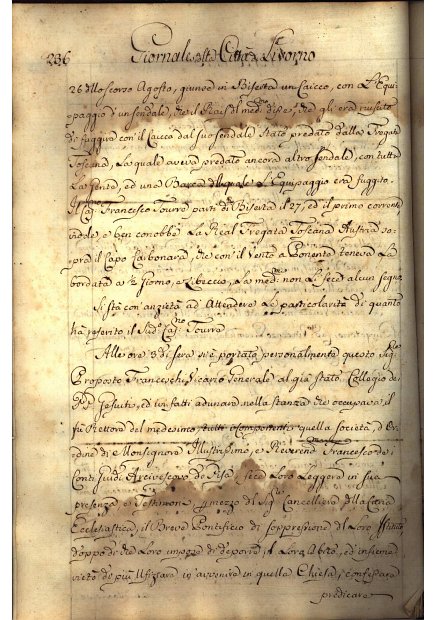 236 Giornale Città Livorno
26 dello scorso Agosto, giunse in Biserta un Caicco, con L'Equi
paggio d'un sendale, che il Rais del med.mo disse, che gli era riuscito
di fuggire con il Caicco dal suo sendale stato predato dalla Fregata
Toscana, La quale aveva predato ancora altro sendale, con tutta
La gente, ed una Barca della quale L'Equipaggio era fuggito.
Il Cap. Francesco Tourra parti di Biserta il 27, ed il primo corrente
vidde, e ben conobbe La Real Fregata Toscana Austria so-
pra il Capo Carbonara, che con il Vento a Ponente teneva La
bordata a ½ giorno, e Libeccio, La med.ma non Li fece alcun segno.
Si stà con anzietà ad Attendere Le particolarità di quanto
hà referito il Sud.o Cap.no Tourra
Alle ore 3 di sera si è portato personalmente questo Sig.
Proposto Franceschi Vicario Generale al già stato Collegio de'
PP. Gesuiti, ed ivi fatti adunare nella stanza che occupava il
fù Rettore del medesimo, tutti i componenti quella società, d'Or-
dine di Monsignore Illustrissimo, e Reverend. Francesco de'
Conti Guidi Arcivescovo di Pisa fece Loro Leggere in sua
presenza e Testimoni per mezzo del Sig. Cancelliere della Curia
Ecclesiastica, il Breve Pontificio di soppressione del Loro Istituto
doppo di che Loro impose di deporre il Loro Abito, ed insieme
vietò di più Ufiziare in avvenire in quella Chiesa, confessare
predicare